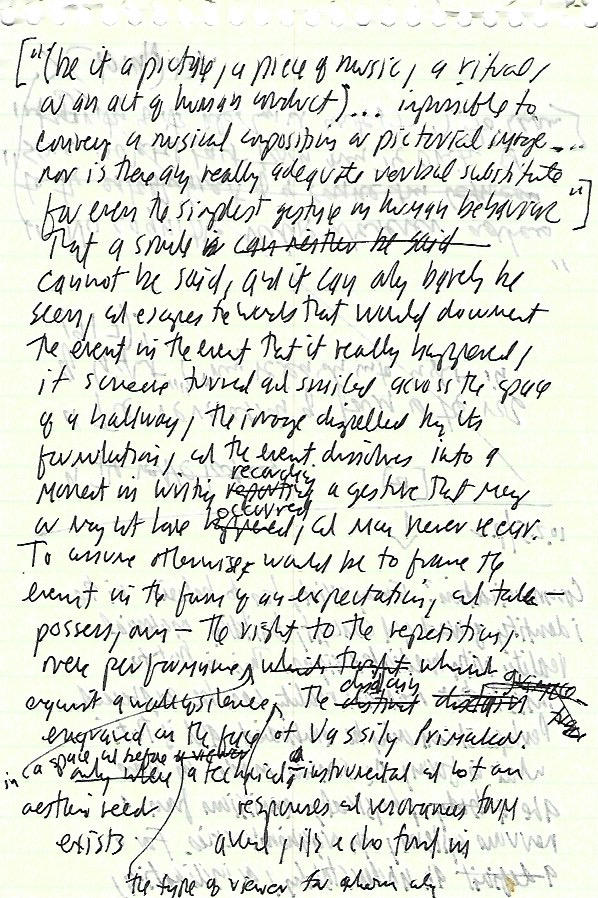 ["(be it a picture, a piece of music, a ritual,
or an act of human conduct)... impossible to
convey a musical composition or pictorial image...
nor is there any really adequate verbal substitute
for even the simplest gesture in human behavior"]
That a smile is can neither be said
cannot be said, and it can only barely be
seen, and escapes the words that would document
the event in the event that it really happened,
if someone turned and smiled across the space
of a hallway, the image dispelled by its
formulation, and the event dissolves into a
recording
moment in writing reporting a gesture that may
occurred
or may not have happened, and may never recur.
To assume otherwise would be to frame the
event in the form of an expectation, and take –
possess, own – the right to the repetition,
over performance, which
against a wall of silence, The disdain
engraved on the face of Vassily Primakov.
in (a space and before a viewer
only when a technical instrumental and not an
aesthetic need. responses and
exists echo found in
the type of viewer for whom only